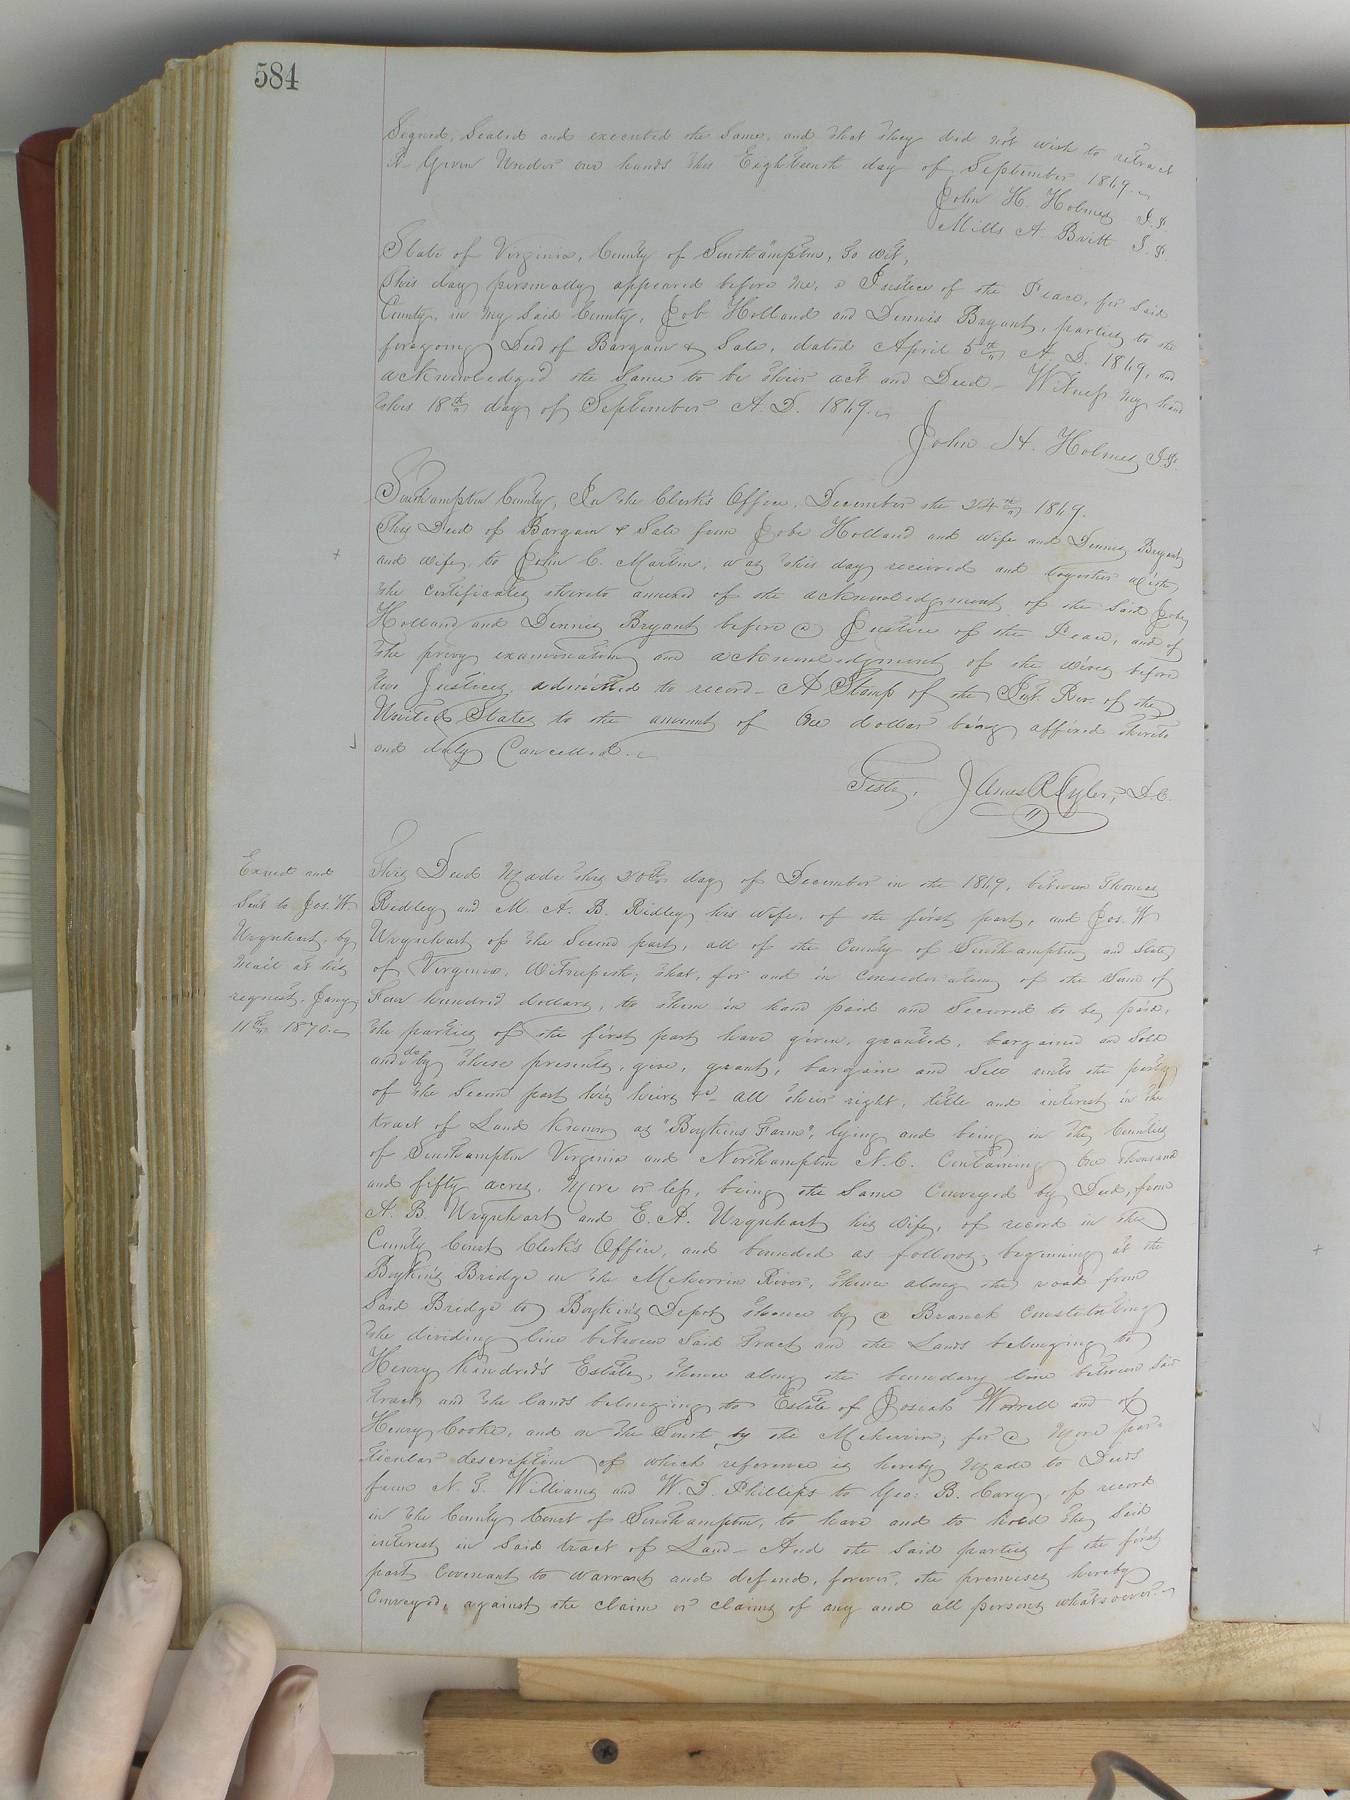 584
Signed, Sealed and executed the Same, and that they did not wish to retract
it. Given Under our hands this Eighteenth day of September 1869.
John H. Holmes J.P.
Mills A. Britt J.P.
State of Virginia, County of Southampton, to wit,
This day personally appeared before me, a Justice of the Peace, for Said
County, in my Said County, Job Holland and Dennis Bryant, parties to the
foregoing Deed of Bargain & Sale, dated April 5th A. D. 1869, and
acknowledged the Same to be their act and Deed – Witness my hand
this 18th day of September A. D. 1869.
John H. Holmes J.P.
Southampton County, In the Clerk's Office, December the 24th 1869.
This Deed of Bargain & Sale from Jobe Holland and wife and Dennis Bryant
and wife, to John C. Martin, was this day received and together with
the certificates thereto annexed of the acknowledgment of the Said Jobe
Holland and Dennis Bryant before a Justice of the Peace, and of
the privy examination and acknowledgment of the wives before
two Justices, admitted to record – A Stamp of the Int. Rev. of the
United States to the amount of One dollar being affixed thereto
and duly Cancelled.
Teste, James R Tyler, D.C.
Exaned and
Sent to Jos. W
Urquhart, by
Mail at his
request, Jany
11th 1870.
This Deed Made this 20th day of December in the 1869, between Thomas
Ridley and M. A. B. Ridley his wife, of the first part, and Jos. W
Urquhart of the Second part, all of the County of Southampton and State
of Virginia, Witnesseth; that, for and in consideration of the Sum of
Four hundred dollars, to them in hand paid and Secured to be paid,
the parties of the first part have given, granted, bargained and Sold
and do by these presents, give, grant, bargain and Sell unto the party
of the Second part his heirs &c – all their right, title and interest in the
tract of Land Known as "Boykins Farm", lying and being in the Counties
of Southampton Virginia and Northampton N. C. Containing One thousand
and fifty acres, More or less, being the Same Conveyed by Deed, from
A. B Urquhart and E. A. Urquhart his wife, of record in the
County Court Clerk's Office, and bounded as follows; beginning at the
Boykin's Bridge on the Meherrin River, thence along the road from
Said Bridge to Boykin's Depot thence by a Branch Constituting
the dividing line between Said tract and the Lands belonging to
Henry Kindred's Estate, thence along the boundary line between Said
tract and the lands belonging to Estate of Josiah Worrell and of
Henry Cooke, and on the South by the Meherrin; for a More par-
ticular description of which reference is hereby Made to Deeds
from N. T. Williams and W. D. Phillips to Geo: B. Cary, of record
in the County Court of Southampton, to have and to hold the Said
interest in Said tract of Land – And the Said parties of the first
part Covenant to warrant and defend, forever, the premises hereby
Conveyed, against the claim or claims of any and all persons whatsoever.